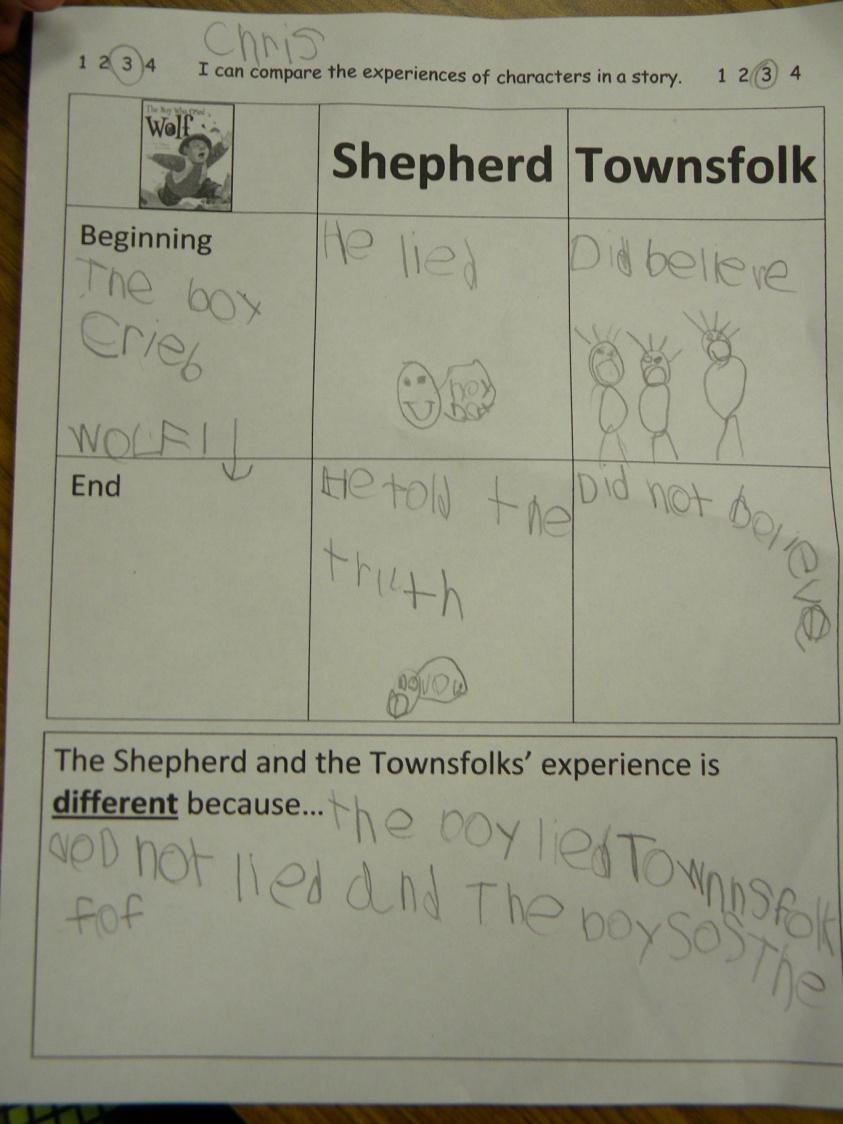 Chris
1 2 3 4 I can compare the experiences of characters in a story. 1 2 3 4
The Boy Who Cried
Wolf
Shepherd
Townsfolk
Beginning
The boy
Crieb
WOLF!
He lied
Did believe
End
He told the
truth
Did not believe
The Shepherd and the Townsfolks' experience is
different because... the boy lied Townnsfolk
deD not lied and The boy SOS The
fof